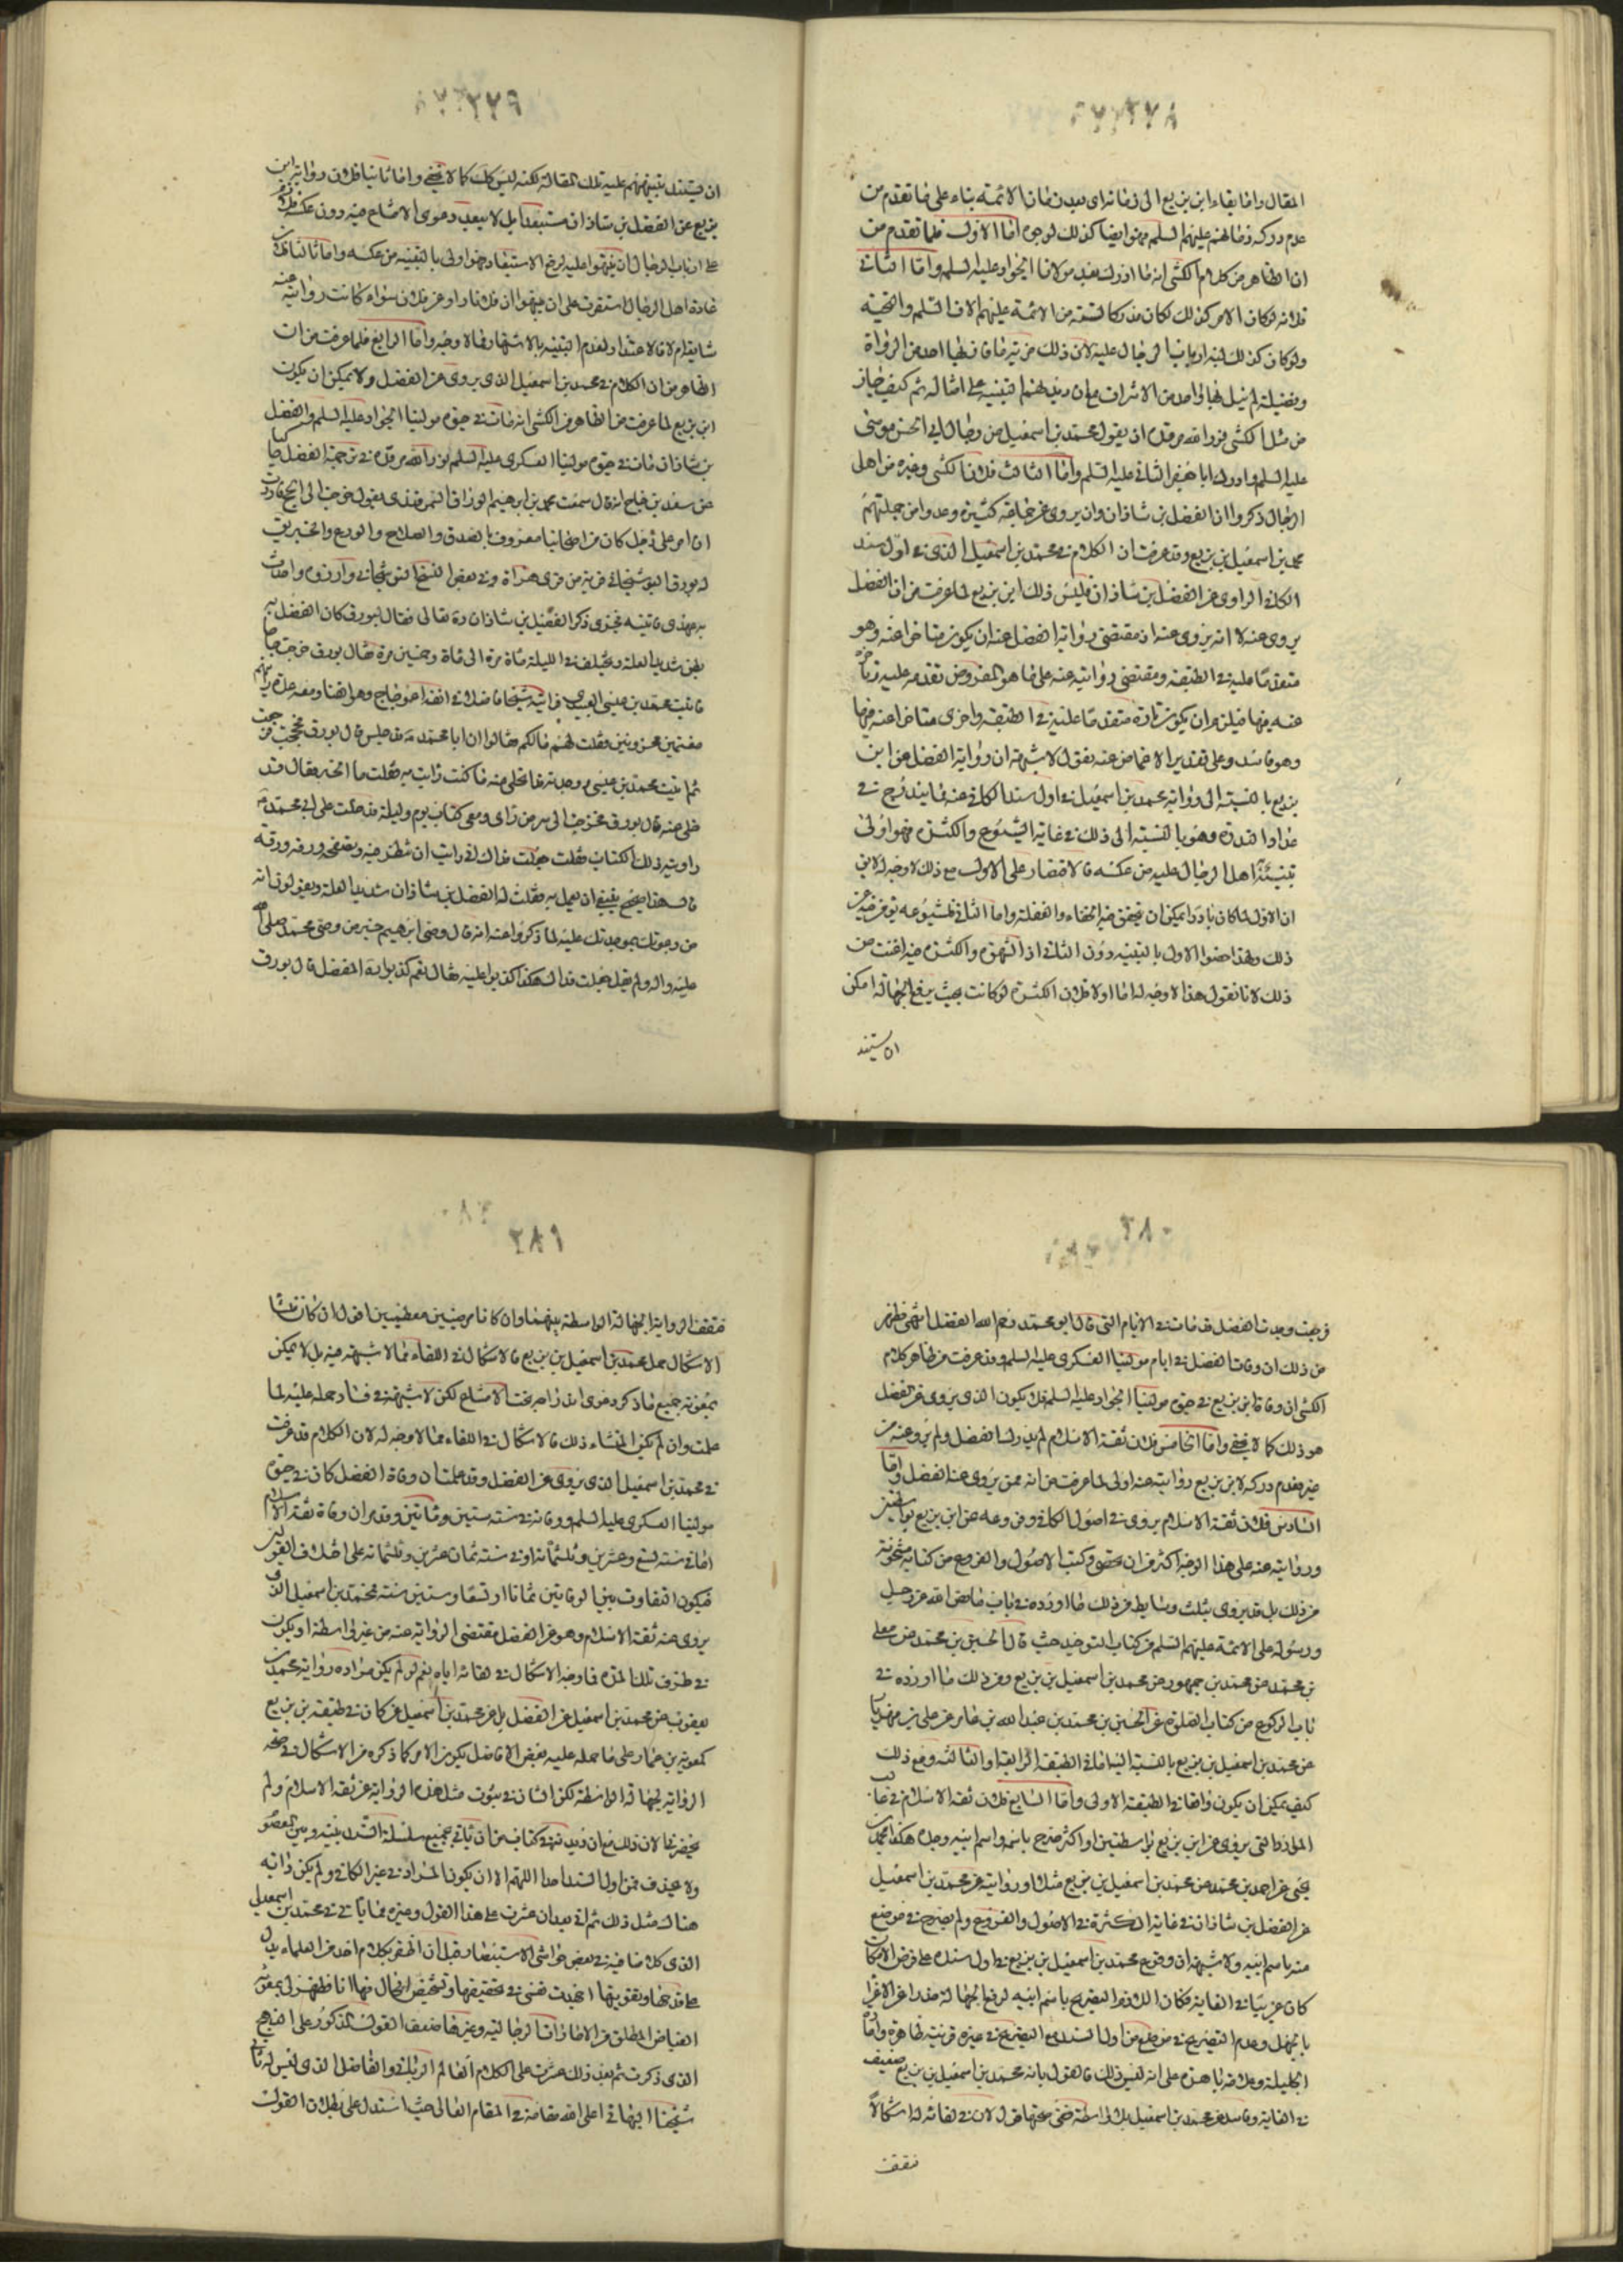 ٢٧٨
المقال واما بقاء ابن بزيع الى زمانه اى بعد زمان الائمة بناء على ما تقدم من
عدم دركه زمانهم عليهم السلم فهو ايضا كذلك لوجوه اما الاول فلما تقدم من
ان الظاهر من كلام الكشى انه ما ادرك بعد مولانا الجواد عليه السلم واما الثانى
فلانه لوكان الامر كذلك لكان مدركا لستة من الائمة عليهم الاف السلم والتحية
ولو كان كذلك لنبه ارباب الرجال عليه لان ذلك مزية ما فاز بها احد من الرواة
وفضيلة لم ينل بها واحد من الاشراف مع ان ديدنهم التنبيه على امثاله ثم كيف جاز
من مثل الكشى نور الله مرقده ان يقول محمد بن اسمعيل من رجال ابى الحسن موسى
عليه السلم وادرك ابا جعفر الثانى عليه السلم واما الثالث فلان الكشى وغيره من اهل
الرجال ذكروا ان الفضل بن شاذان وان يروى عن جماعة كثيرة وعدوا من جملتهم
محمد بن اسمعيل بن بزيع وقد عرفت ان الكلام فى محمد بن اسمعيل الذى فى اول سند
الكافى الراوى عن الفضل بن شاذان فليس ذلك ابن بزيع لما عرفت من ان الفضل
يروى عنه لا انه يروى عنه اذ مقتضى رواية الفضل عنه ان يكون متاخرا عنه وهو
متقدما عليه فى الطبقة ومقتضى روايته عنه على ما هو المفروض تقدمه عليه وتاخره
عنه فيها فيلزم ان يكون تارة متقدما عليه فى الطبقة واخرى متاخرا عنه فيها
وهو فاسد وعلى تقدير الاغماض عنه نقول لا شبهة ان رواية الفضل عن ابن
بزيع بالنسبة الى رواية محمد بن اسمعيل فى اول سند الكافى عنه مما يندرج فى
عداد الندرة وهو بالنسبة الى ذلك فى غاية الشيوع والكثرة فهو اولى
بتنبيه اهل الرجال عليه من عكسه فالاقتصار على الاول مع ذلك لا وجه له لا يق
ان الاول لما كان نادرا يمكن ان يتحقق فيه الخفاء والغفلة واما الثانى فلشيوعه
ذلك ولهذا خصوا الاول بالتنبيه دون الثانى اذ الشهرة والكثرة فيه اغنت من
ذلك لانا نقول هذا لا وجه له اما اولا فلان الكثرة لو كانت بحيث يرفع الجهالة امكن
ان يستند
٢٧٩
ان يستند تنبيههم عليه تلك المقالة لكنه ليس كك كما لا يخفى واما ثانيا فلان رواية ابن
بزيع عن الفضل بن شاذان مستبعد بل لا يبعد دعوى الامتناع فيه دون عكسه
على ارباب الرجال ان ينبهوا عليه لرفع الاستبعاد فهو اولى بالتنبيه من عكسه واما ثالثا فلان
عادة اهل الرجال استقرت على ان ينبهوا ان فلانا راو عن فلان سواء كانت روايته عنه
شايعة ام لا فالاعتذار لعدم التنبيه بالاشتهار مما لا وجه له واما الرابع فلما عرفت من ان
الظاهر من ان الكلام فى محمد بن اسمعيل الذى يروى عن الفضل ولا يمكن ان يكون
ابن بزيع لما عرفت من الظاهر من الكشى انه مات فى حيوة مولينا الجواد عليه السلم والفضل
بن شاذان مات فى حيوة مولينا العسكرى عليه السلم نور الله مرقده فى ترجمة الفضل
عن سعد بن جناح انه قال سمعت محمد بن ابرهيم الوراق السمرقندى يقول خرجت الى الحج فاردت
ان امر على رجل كان من اصحابنا معروف بالصدق والصلاح والورع والخير يق
له بورق البوشنجانى قرية من قرى هراة وفى بعض النسخ وازوره واحدث
به عهدى فاتيته فجرى ذكر الفضل بن شاذان ره تعالى فقال بورق كان الفضل به
بطن شديد العلة ويختلف فى الليلة مأة مرة الى مأة وخمسين مرة فقال بورق خرجت حاجا
فاتيت محمد بن عيسى العبيدى فرايته شيخا فاضلا فى انفه اعوجاج وهو القنا ومعه عدة رايتهم
مغتمين محزونين فقلت لهم ما لكم فقالوا ان ابا محمد ع قد حبس قال بورق فحججت ورجعت
ثم اتيت محمد بن عيسى ووجدته قد انجلى عنه ما كنت رايت به فقلت ما الخبر فقال قد
خلى عنه قال بورق فخرجت الى سر من راى ومعى كتاب يوم وليلة فدخلت على ابى محمد ع
واريته ذلك الكتاب فقلت جعلت فداك ان رايت ان تنظر فيه وتصفحه ورقة ورقة
قال هذا صحيح ينبغى ان يعمل به فقلت له الفضل بن شاذان شديد العلة ويقولون انه
من دعوتك بموجدتك عليه لما ذكروا عنه انه قال وصى ابرهيم خير من وصى محمد صلى الله
عليه واله ولم يقل جعلت فداك هكذا كذبوا عليه فقال نعم كذبوا رحم الله الفضل قال بورق
٢٨٠
فرجعت وجدت الفضل قد مات فى الايام التى قال ابو محمد رحم الله الفضل انتهى فظهر
من ذلك ان وفات الفضل فى ايام مولينا العسكرى عليه السلم وقد عرفت من ظاهر كلام
الكشى ان وفاة ابن بزيع فى حيوة مولينا الجواد عليه السلم فلا يكون الذى يروى عن الفضل
هو ذلك كما لا يخفى واما الخامس فلان ثقة الاسلام لم يدرك الفضل ولم يرو عنه من
غير فعدم دركه لابن بزيع روايته عنه اولى لما عرفت من انه ممن يروى عنه الفضل واما
السادس فلان ثقة الاسلام يروى فى اصول الكافى وفروعه عن ابن بزيع بواسطتين
وروايته عنه على هذا الوجه اكثر من ان يحصى وكتب الاصول والفروع من كتابه مشحونة
من ذلك بل قد يروى بثلث وسايط من ذلك ما اورده فى باب ما نص الله عز وجل
ورسوله على الائمة عليهم السلم من كتاب التوحيد حيث قال الحسين بن محمد عن معلى
بن محمد عن محمد بن جمهور عن محمد بن اسمعيل بن بزيع ومن ذلك ما اورده فى
باب الركوع من كتاب الصلوة عن الحسين بن محمد بن عبد الله بن عامر عن على بن مهزيار
عن محمد بن اسمعيل بن بزيع بالنسبة اليه اما فى الطبقة الرابعة او الثالثة ومع ذلك
كيف يمكن ان يكون واقعا فى الطبقة الاولى واما السابع فلان ثقة الاسلام فى غالب
الموارد التى يروى عن ابن بزيع بواسطتين او اكثر صرح باسمه واسم ابيه وجده هكذا محمد بن
يحيى عن احمد بن محمد عن محمد بن اسمعيل بن بزيع مثلا وروايته عن محمد بن اسمعيل
عن الفضل بن شاذان فى غاية الكثرة فى الاصول والفروع ولم يصرح فى موضع
منه باسم ابيه ولا شبهة ان وقوع محمد بن اسمعيل بن بزيع فى اول سنده على فرض الامكان
كان غريبا فى الغاية فكان اللازم التصريح باسم ابيه لرفع الجهالة حذرا عن الاغراء
بالجهل وعدم التصريح فى موضع من اول السند مع التصريح فى غيره قرينة ظاهرة وامارة
جليلة وعلامة باهرة على انه ليس ذلك فالقول بانه محمد بن اسمعيل بن بزيع ضعيف
فى الغاية وفاسد محمد بن اسمعيل بلا واسطة ففى صحتها قول لان فى لقائه له اشكالا
فتقف
٢٨١
فتقف الرواية لجهالة الواسطة بينهما وان كانا مرضيين معظمين اقول ان كان منشأ
الاشكال حمل محمد بن اسمعيل بن بزيع فالاشكال فى اللقاء مما لا شبهة فيه بل لا يمكن
بمعونة جميع ما ذكر دعوى اندراجه تحت الامتناع لكن لا شبهة فى فساد حمله عليه لما
علمت وان لم يكن المنشاء ذلك فالاشكال فى اللقاء مما لا وجه له لان الكلام قد عرفت
فى محمد بن اسمعيل الذى يروى عن الفضل وقد علمت ان وفاة الفضل كان فى حيوة
مولينا العسكرى عليه السلم ووفاته فى سنة ستين ومأتين وقد مر ان وفاة ثقة الاسلام
اما فى سنة تسع وعشرين وثلثمأة او فى سنة ثمان عشرين وثلثمأة على اختلاف القولين
فيكون التفاوت بين الوفاتين ثمانا او تسعا وستين سنة فمحمد بن اسمعيل الذى
يروى عنه ثقة الاسلام وهو عن الفضل مقتضى الرواية عنه من غير واسطة ان يكون
فى طرف تلك المدة فما وجه الاشكال فى لقائه اياه نعم لو لم يكن مراده رواية محمد بن
يعقوب عن محمد بن اسمعيل عن الفضل بل عن محمد بن اسمعيل عمن كان فى طبقة بن بزيع
كمعوية بن عمار على ما حمله عليه بعض الافاضل يكون الامر كما ذكره من الاشكال فى صحة
الرواية لجهالة الواسطة لكن الشان فى ثبوت مثل هذه الرواية عن ثقة الاسلام ولم
يحضرنى الان ذلك مع ان ديدنه فى كتابه من ان ياتى بجميع سلسلة السند بينه وبين المعصوم
ولا يحذف من اول السند احدا اللهم الا ان يكون المراد فى غير الكافى ولم يكن دابه
هناك مثل ذلك ثم انى بعد ان عثرت على هذا القول وغيره مما ياتى فى محمد بن اسمعيل
الذى كلامنا فيه فى بعض حواشى الاستبصار وقبل ان الظفر بكلام احد من العلماء يدل
على قدحها وتقويتها اتعبت نفسى فى تحقيقها وتشخيص الحال فيها انا فظهر لى بمعونة
الفياض المطلق من الامارات الرجالية وغيرها ضعف القول المذكور على النهج
الذى ذكرت ثم بعد ذلك عثرت على الكلام العالم الربانى والفاضل الذى ليس له ثان
شيخنا البهائى اعلى الله مقامه فى المقام العالى حيث استدل على بطلان القول